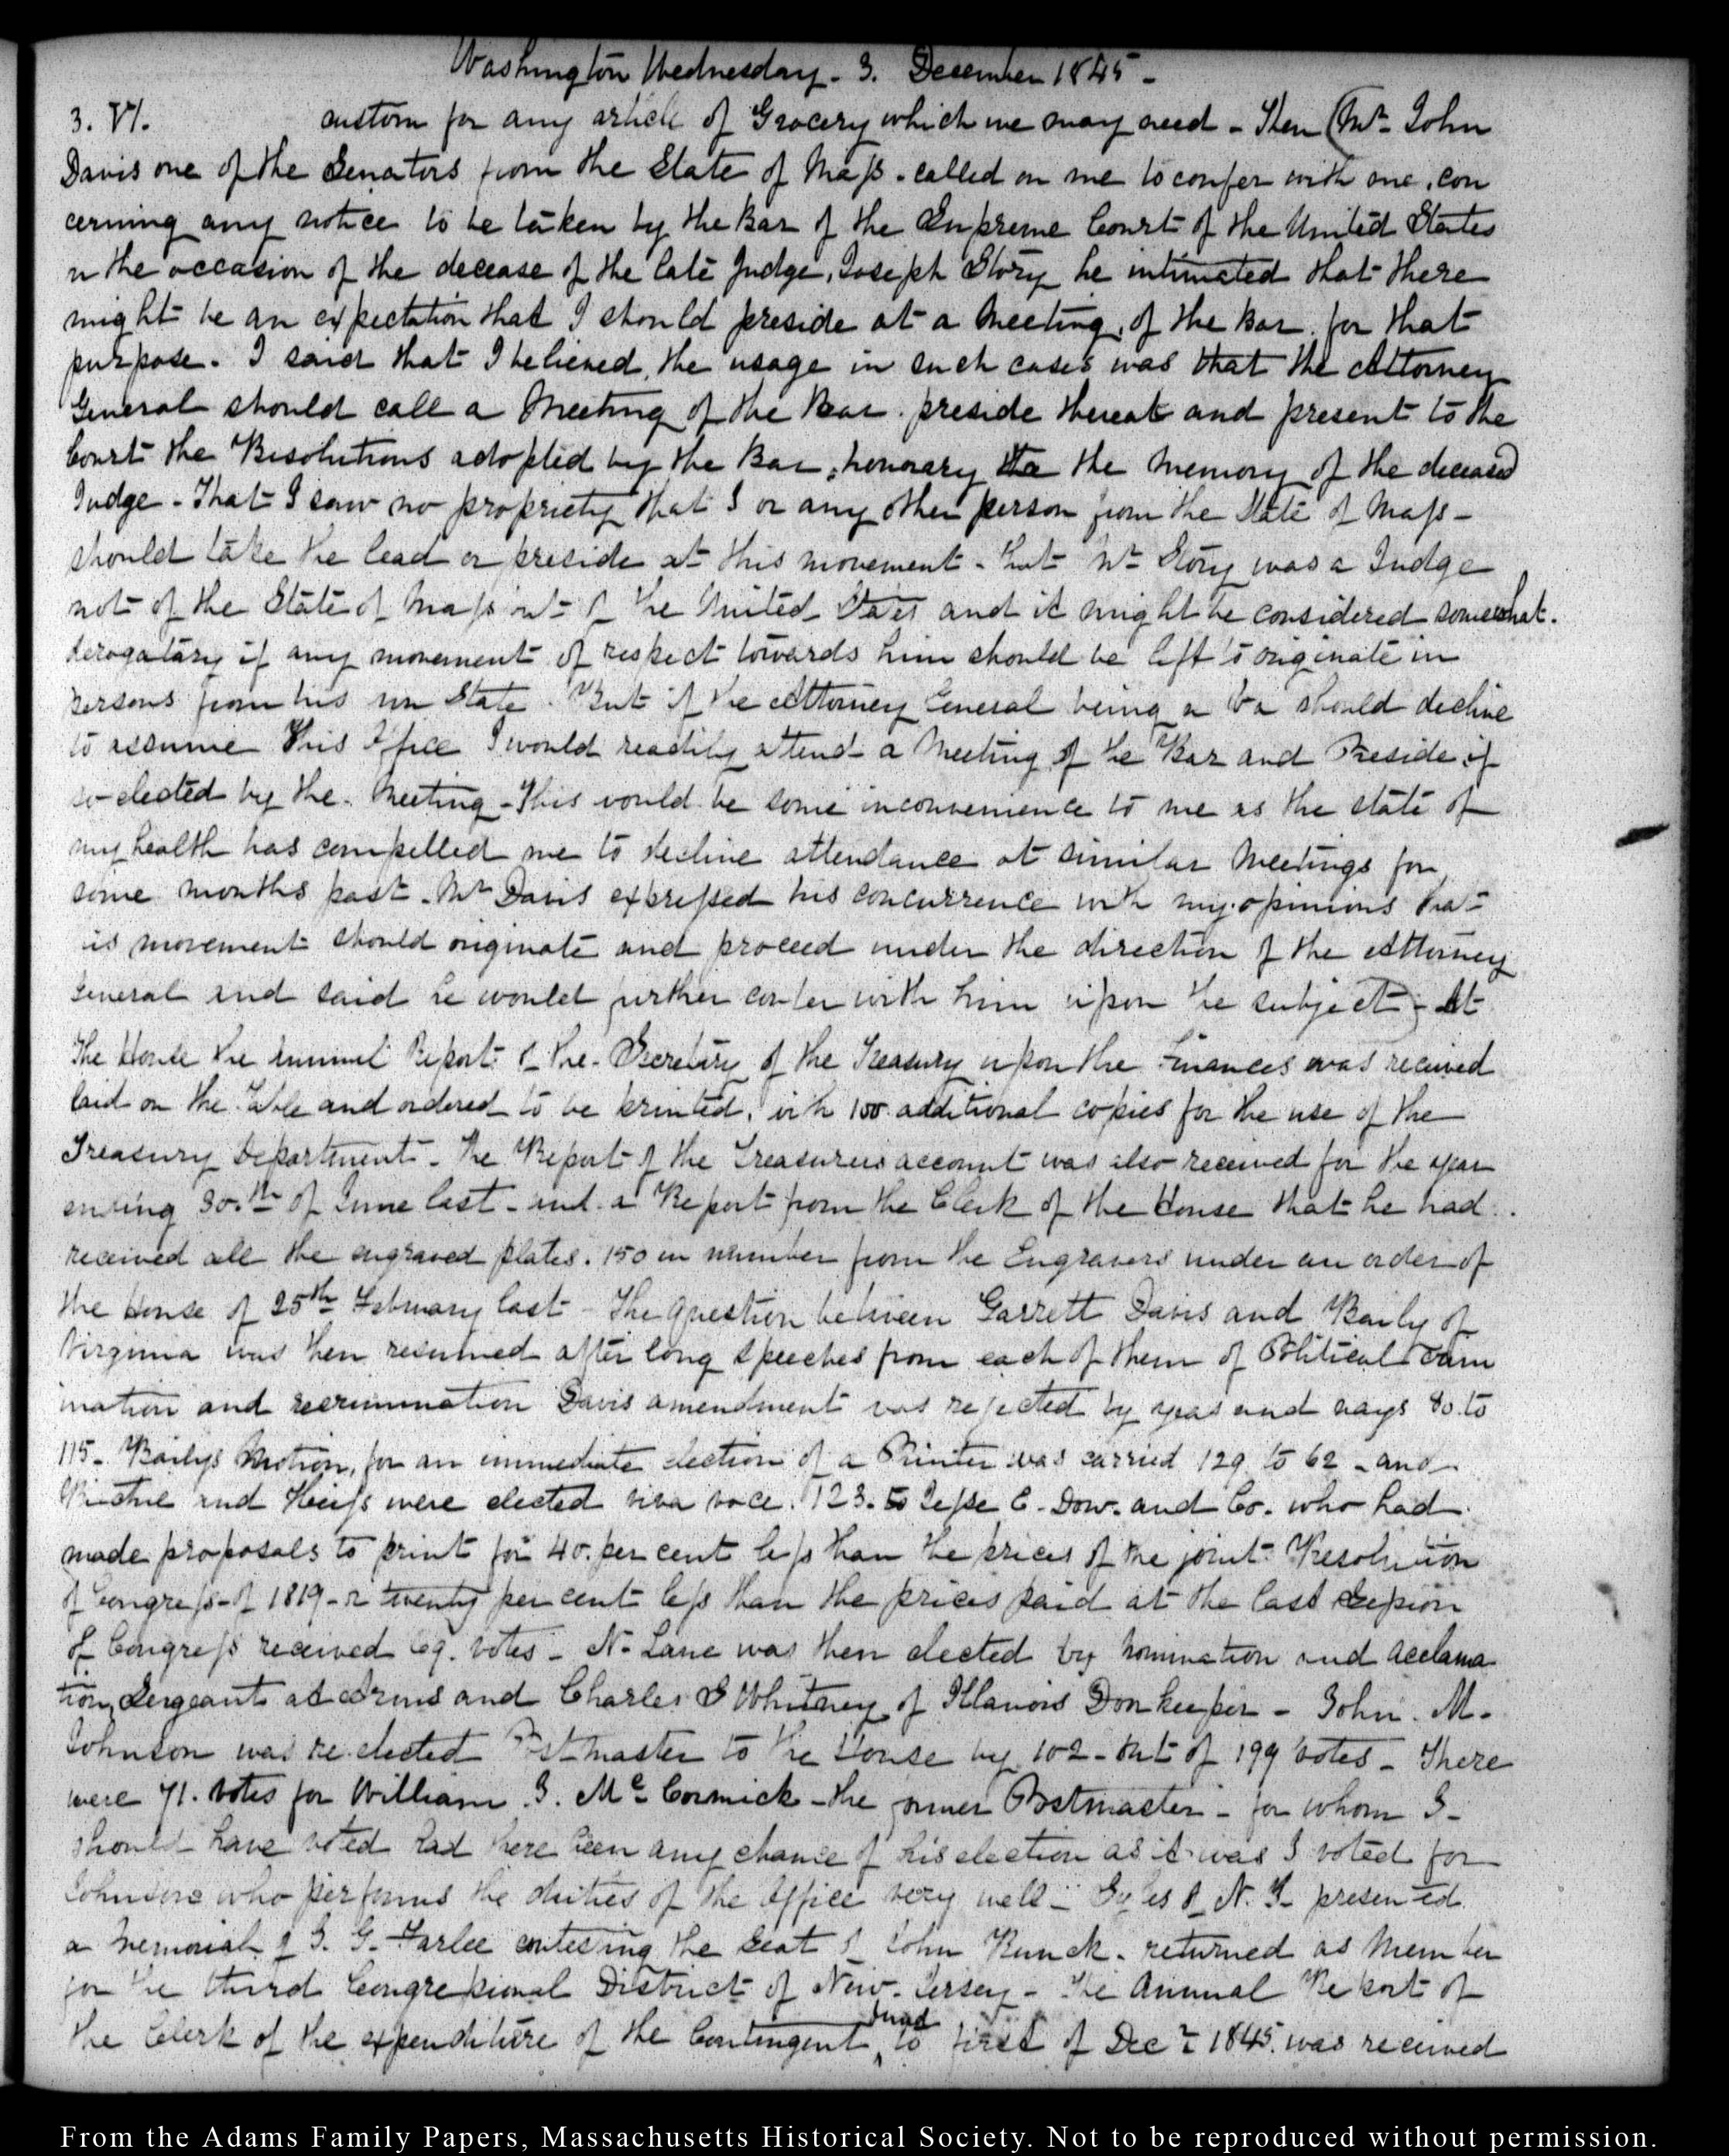 Washington Wednesday. 3. December 1845 –
3. VI. custom for any article of Grocery which we may need – Then (Mr. John
Davis one of the Senators from the State of Mass. called on me to confer with me, con
cerning any notice to be taken by the Bar of the Supreme Court of the United States
n the occasion of the decease of the late Judge, Joseph Story he intimated that there
might be an expectation that I should preside at a Meeting, of the Bar for that
purpose. I said that I believed, the usage in such cases was that the Attorney
General should call a Meeting of the Bar preside thereat and present to the
Court the Resolutions adopted by the Bar, honorary to the Memory of the deceased
Judge – That I saw no propriety that I or any other person from the State of Mass –
should take the lead or preside at this movement – that Mr Story was a Judge
not of the State of Mass but of the United States and it might be considered somewhat.
derogatory if any movement of respect towards him should be left to originate in
persons from his own State. But if the Attorney General being a should decline
to assume this Office I would readily attend a Meeting of the Bar and Preside if
so elected by the Meeting – This would be some inconvenience to me as the state of
my health has compelled me to decline attendance at similar Meetings for
some months past. Mr Davis expressed his concurrence with my opinions that
is movement should originate and proceed under the direction of the Attorney
General and said he would further confer with him upon the subject – At
The House the annual Report of the Secretary of the Treasury upon the Finances was received
laid on the Table and ordered to be printed, with 100 additional copies for the use of the
Treasury Department – The Report of the Treasurers account was also received for the year
ending 30.th of June last – and a Report from the Clerk of the House that he had
received all the engraved plates. 150 in number from the Engravers under an order of
the House of 25th February last – The question between Garrett Davis and Baily of
Virginia was then resumed after long speeches from each of them of Political crim
ination and recrimination Davis amendment was rejected by yeas and nays 80 to
115 – Bailys Motion, for an immediate election of a Printer was carried 129 to 62 – and
Ritchie and Heiss were elected viva voce. 123. to Jesse E. Dow. and Co. who had
made proposals to print for 40. per cent less than the prices of the joint Resolution
of Congress of 1819 – or twenty per cent less than the prices paid at the last Session
of Congress received 69. votes – N. Lane was then elected by nomination and acclama
tion, Sergeant at Arms and Charles S Whitney of Illanois Doorkeeper – John. M.
Johnson was re elected Postmaster to the House by 102 – out of 199 votes – There
were 71. votes for William. J. McCormick – the former Postmaster – for whom I
should have voted had there been any chance of his election as it was I voted for
Johnson who performs the duties of the Office very well – Sykes of N. J. presented
a Memorial of I. G. Farlee contesting the Seat of John Runck. returned as Member
for the third Congressional District of New. Jersey – The Annual Report of
the Clerk of the expenditure of the Contingent fund to first of Decr 1845. was received
From the Adams Family Papers, Massachusetts Historical Society. Not to be reproduced without permission.